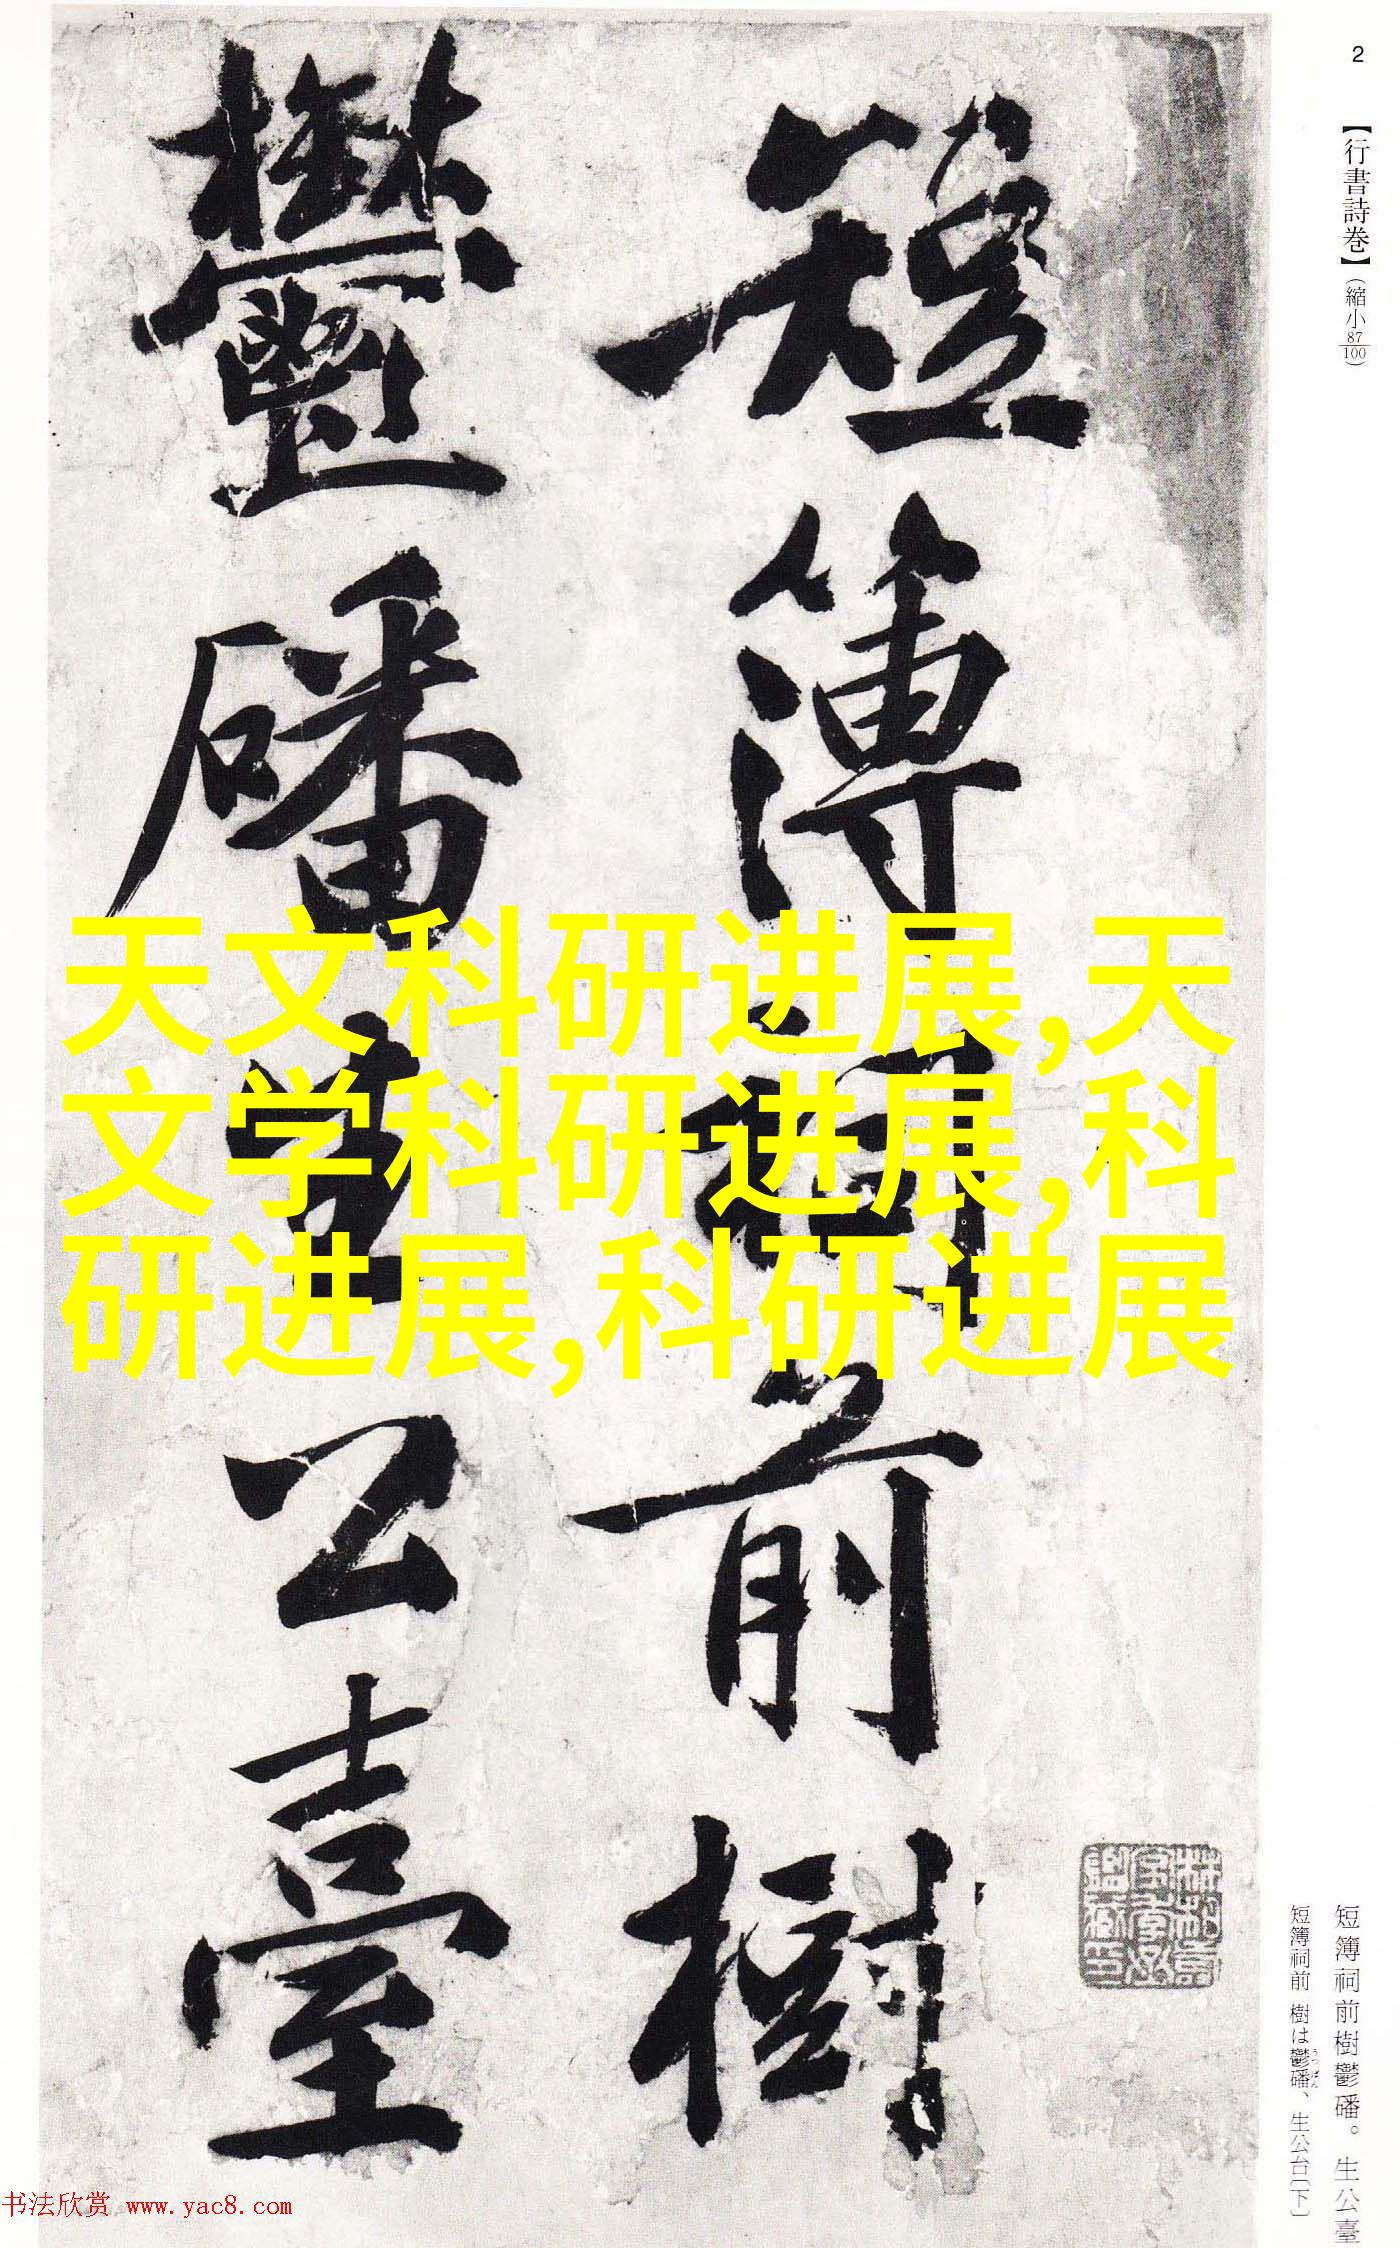 2
【行書詩卷】（縮小87/100）
短簿祠前樹
鬱磻生公臺
天文科研进展,天
文学科研进展,科
研进展,科研进展
短簿祠前樹鬱磻。生公臺
短簿祠前 樹は鬱磻、生公台〔下〕
うっぱん
书法欣赏 www.yac8.com